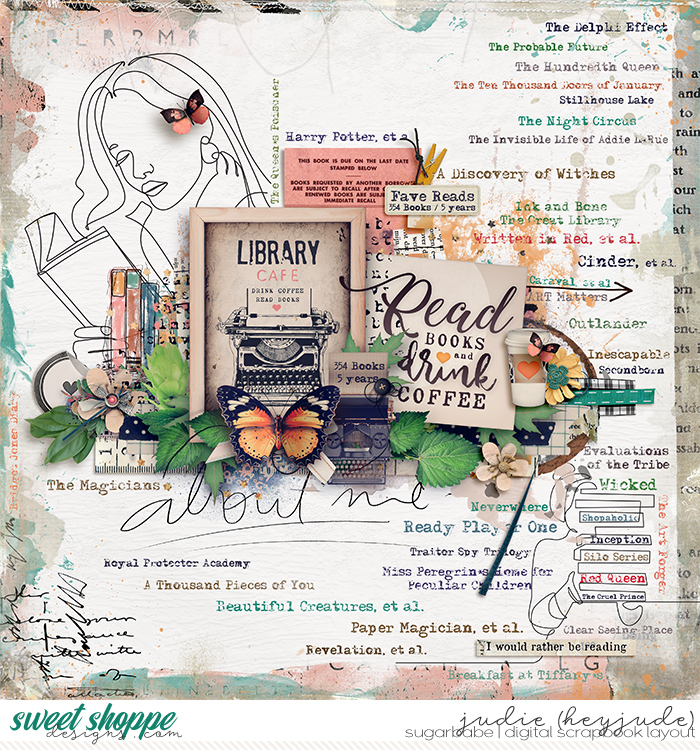 The Delphi Effect
The Probable Future
The Hundredth Queen
The Ten Thousand Doors of January
Stillhouse Lake
The Night Circus
The Invisible Life of Addie LaRue
The Queen's Poisoner
Harry Potter, et al
THIS BOOK IS DUE ON THE LAST DATE
STAMPED BELOW
BOOKS REQUESTED BY ANOTHER BORROWER
ARE SUBJECT TO RECALL AFTER
RENEWED BOOKS ARE SUBJ
IMMEDIATE RECALL
A Discovery of Witches
Fave Reads
354 Books / 5 years
Ink and Bone
The Great Library
Written in Red, et al.
Cinder, et al.
Caraval, et al
ART Matters
Outlander
Inescapable
Secondborn
LIBRARY
CAFE
DRINK COFFEE
READ BOOKS
Read
BOOKS
and
drink
COFFEE
354 Books
5 years
Evaluations
of the Tribe
Wicked
The Magicians
about me
Neverwhere
Ready Player One
Shopaholic
Inception
Silo Series
Red Queen
The Cruel Prince
The Art Forger
Traitor Spy Trilogy
Royal Protector Academy
Miss Peregrine's Home for
Peculiar Children
A Thousand Pieces of You
Beautiful Creatures, et al.
Paper Magician, et al.
Clear Seeing Place
Revelation, et al.
I would rather be reading
Breakfast at Tiffany's
sweet shoppe
designs.com
judie (heyjude)
sugarbabe | digital scrapbook layout